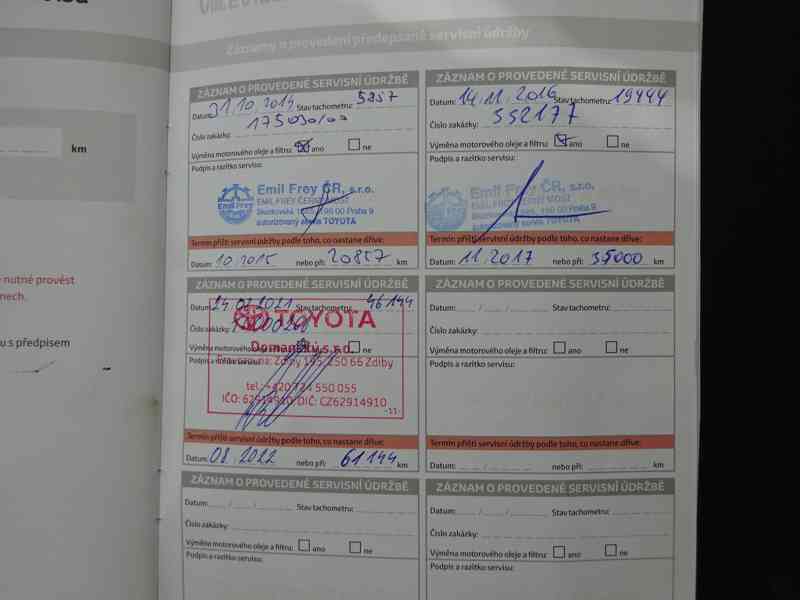 Záznamy o provedení předepsané servisní údržby
km
nutné provést
nech.
u s předpisem
ZÁZNAM O PROVEDENÉ SERVISNÍ ÚDRŽBĚ
Datum: 31.10.2014 Stav tachometru: 5857
Číslo zakázky:
Výměna motorového oleje a filtru: ano ne
Podpis a razítko servisu:
Emil Frey ČR, s.r.o.
EMIL FREY ČERNÝ MOST
198 00 Praha 9
autorizovaný servis TOYOTA
Termín příští servisní údržby podle toho, co nastane dříve:
Datum: 10.2015 nebo při: 20857 km
ZÁZNAM O PROVEDENÉ SERVISNÍ ÚDRŽBĚ
Datum: 14.11.2016 Stav tachometru: 19444
Číslo zakázky: 552177
Výměna motorového oleje a filtru: ano ne
Podpis a razítko servisu:
Emil Frey ČR, s.r.o.
EMIL FREY ČERNÝ MOST
198 00 Praha 9
autorizovaný servis TOYOTA
Termín příští servisní údržby podle toho, co nastane dříve:
Datum: 11.2017 nebo při: 35000 km
ZÁZNAM O PROVEDENÉ SERVISNÍ ÚDRŽBĚ
Datum: Stav tachometru: 46144
Číslo zakázky:
TOYOTA
Výměna motorového ne
Domanský s.r.o.
Podpis a razítko servisu:
Zdiby 195, 250 66 Zdiby
tel.: +420 724 550 055
IČO: 62914910, DIČ: CZ62914910
-11-
Termín příští servisní údržby podle toho, co nastane dříve:
Datum: 08.2022 nebo při: 61144 km
ZÁZNAM O PROVEDENÉ SERVISNÍ ÚDRŽBĚ
Datum: Stav tachometru:
Číslo zakázky:
Výměna motorového oleje a filtru: ano ne
Podpis a razítko servisu:
Termín příští servisní údržby podle toho, co nastane dříve:
Datum: nebo při: km
ZÁZNAM O PROVEDENÉ SERVISNÍ ÚDRŽBĚ
Datum: Stav tachometru:
Číslo zakázky:
Výměna motorového oleje a filtru: ano ne
Podpis a razítko servisu:
ZÁZNAM O PROVEDENÉ SERVISNÍ ÚDRŽBĚ
Datum: Stav tachometru:
Číslo zakázky:
Výměna motorového oleje a filtru: ano ne
Podpis a razítko servisu: